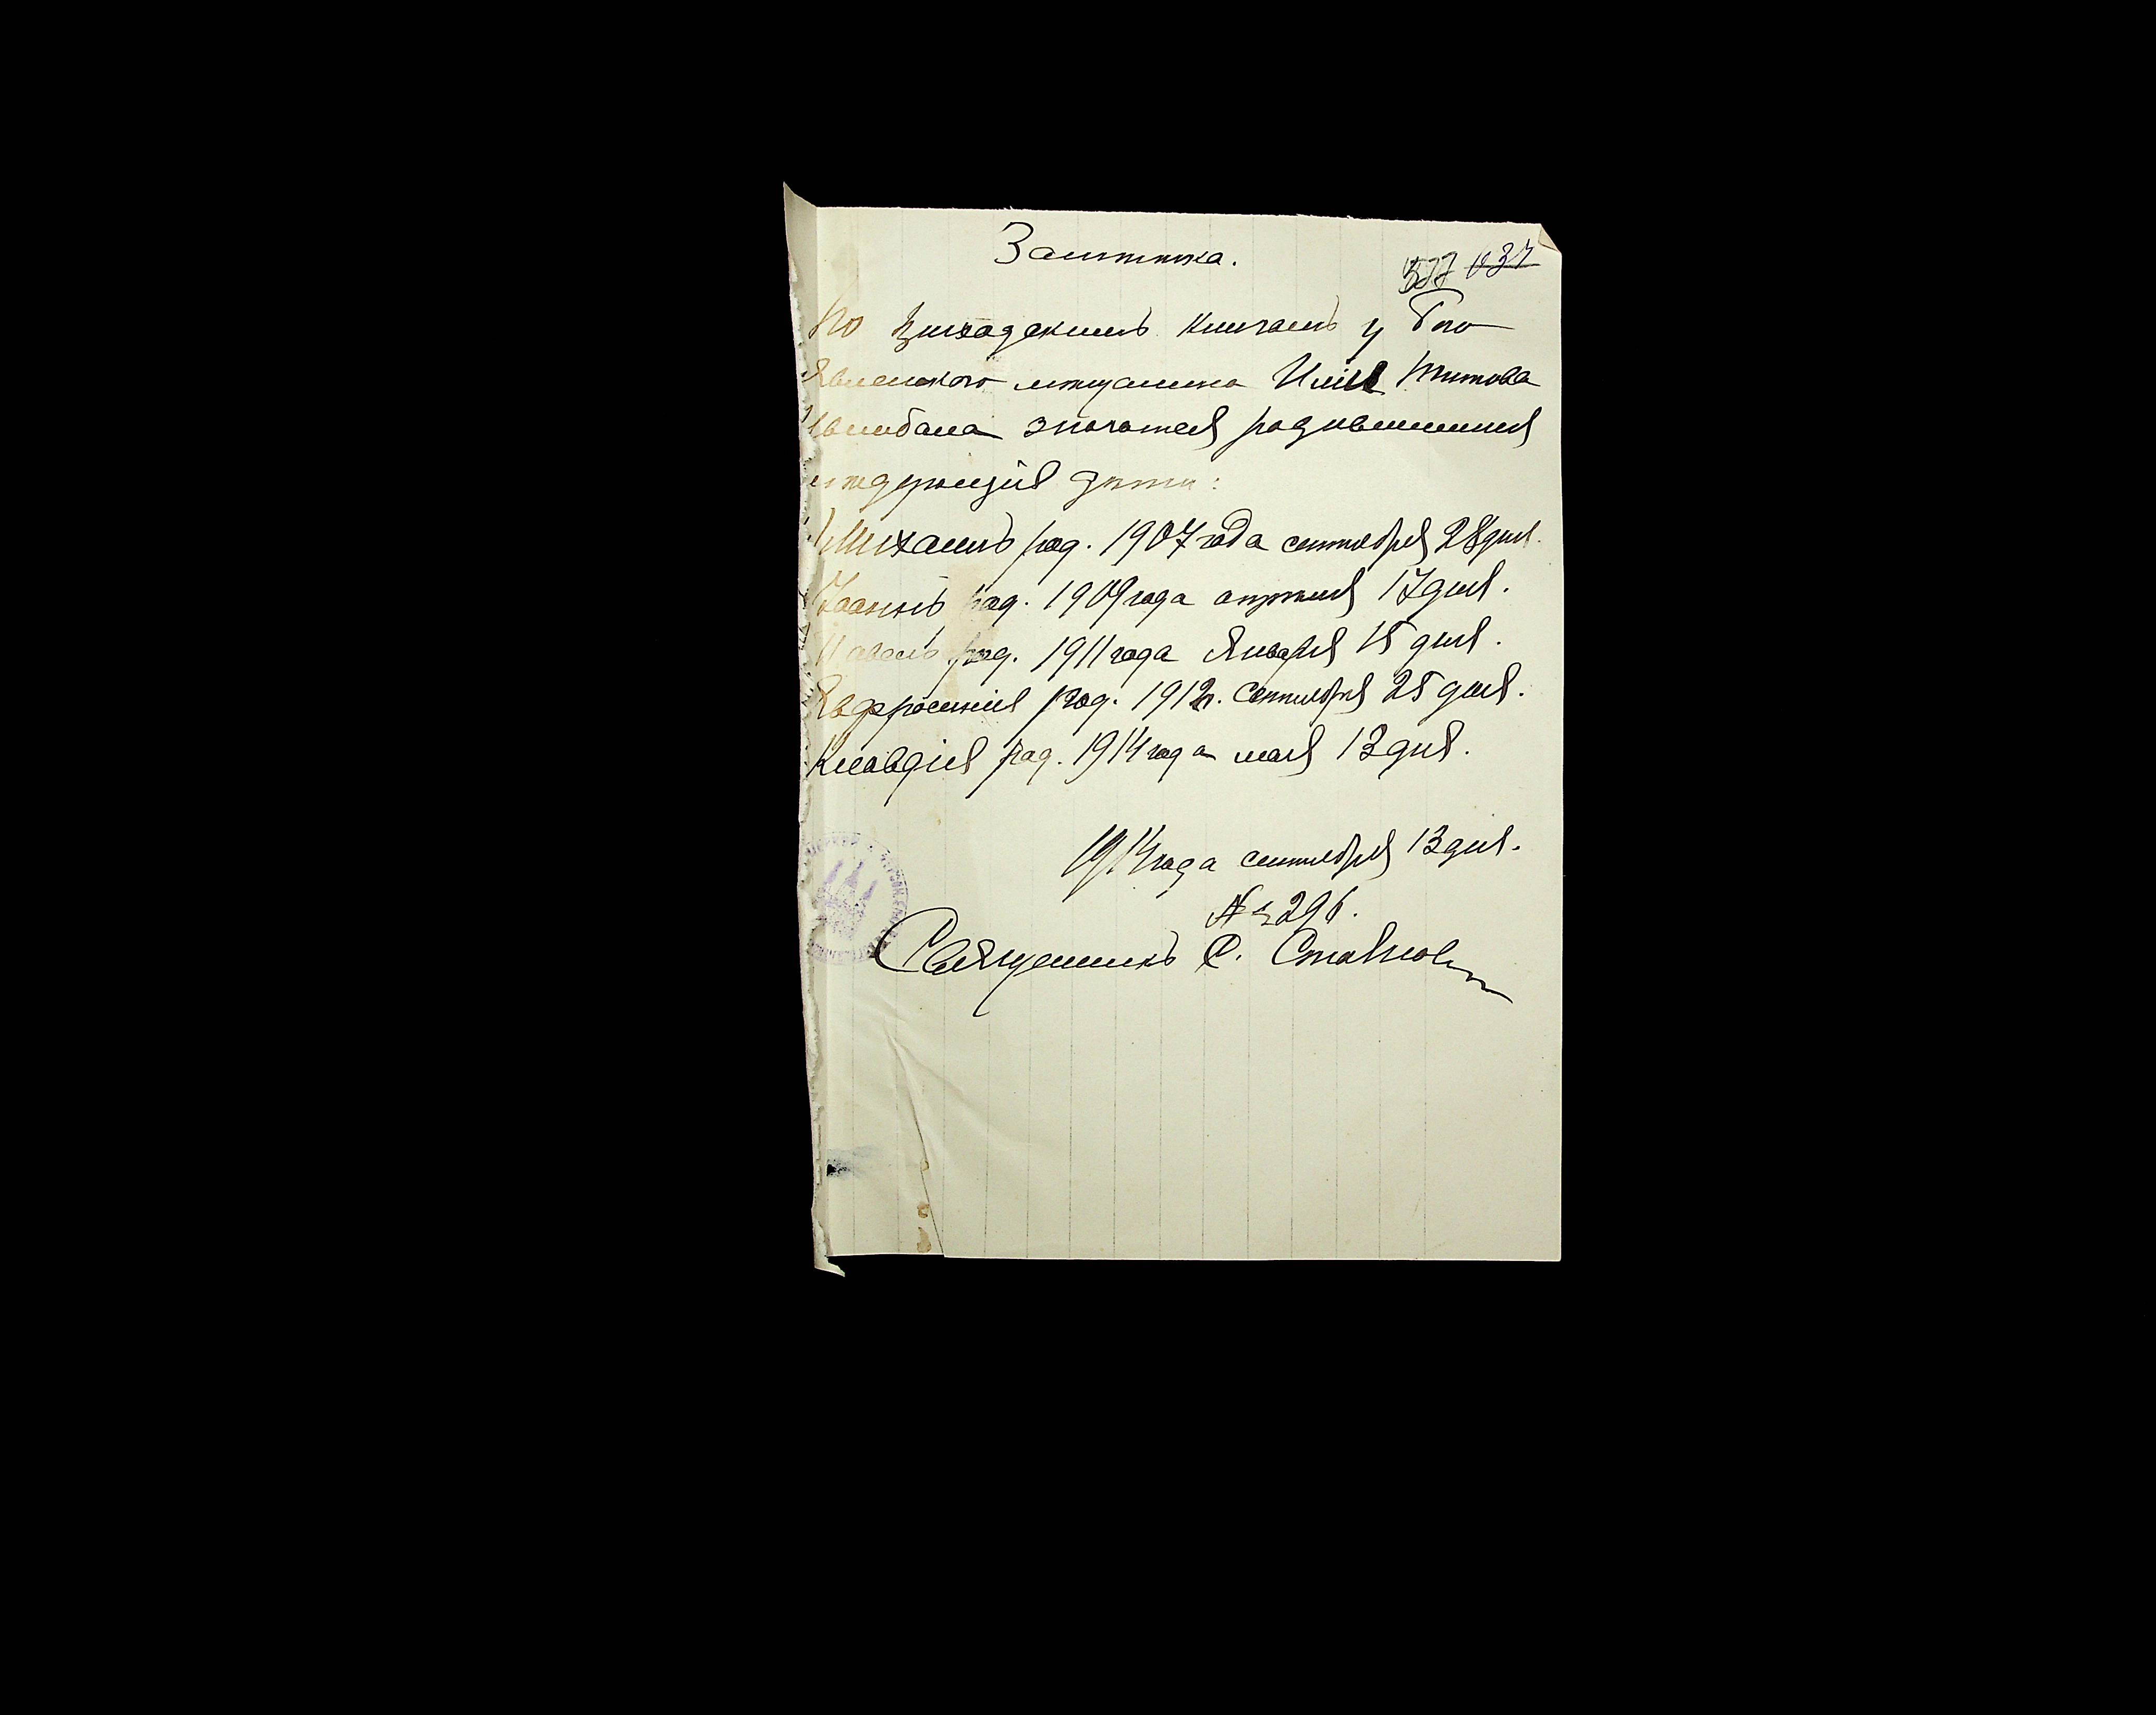 Замѣтка.
577 637
По приходскимъ книгамъ у Бого
явленского мѣщанина Иліи Титова
значатся родившимися
слѣдующія дѣти:
Михаилъ род. 1907 года сентября 28 дня.
Іоаннъ род. 1909 года апрѣля 17 дня.
Павелъ род. 1911 года Января 15 дня.
Евфросинія род. 1912 г. Сентября 25 дня.
Клавдія род. 1914 года мая 13 дня.
1914 года сентября 13 дня.
№ 296.
Священникъ С.